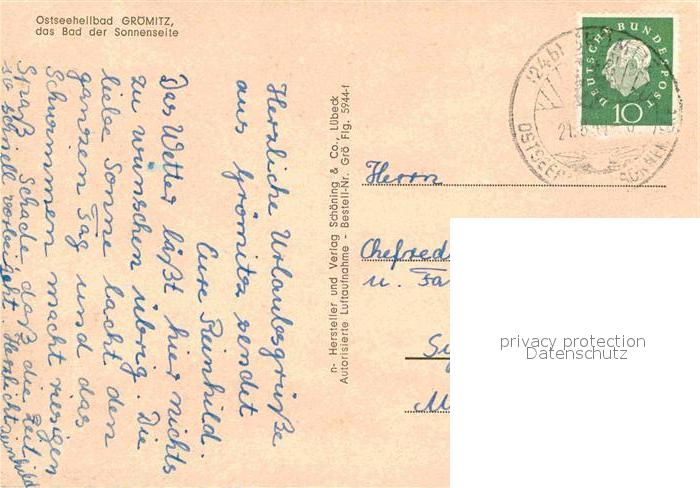 Ostseeheilbad GRÖMITZ,
das Bad der Sonnenseite
Herzliche Urlaubsgrüße
aus Grömitz sendet
Eure Reinhild.
Das Wetter läßt hier nichts
zu wünschen übrig. Die
liebe Sonne lacht den
ganzen Tag und das
Schwimmen macht riesigen
Spaß. Schade, daß die Zeit
so schnell vorbei geht.
n- Hersteller und Verlag Schöning & Co., Lübeck
Autorisierte Luftaufnahme - Bestell-Nr. Grö Flg. 5944-f
DEUTSCHE BUNDESPOST
10
(24b)
OSTSEE
SONNEN
Herrn
Chefred
u. Fa
privacy protection
Datenschutz